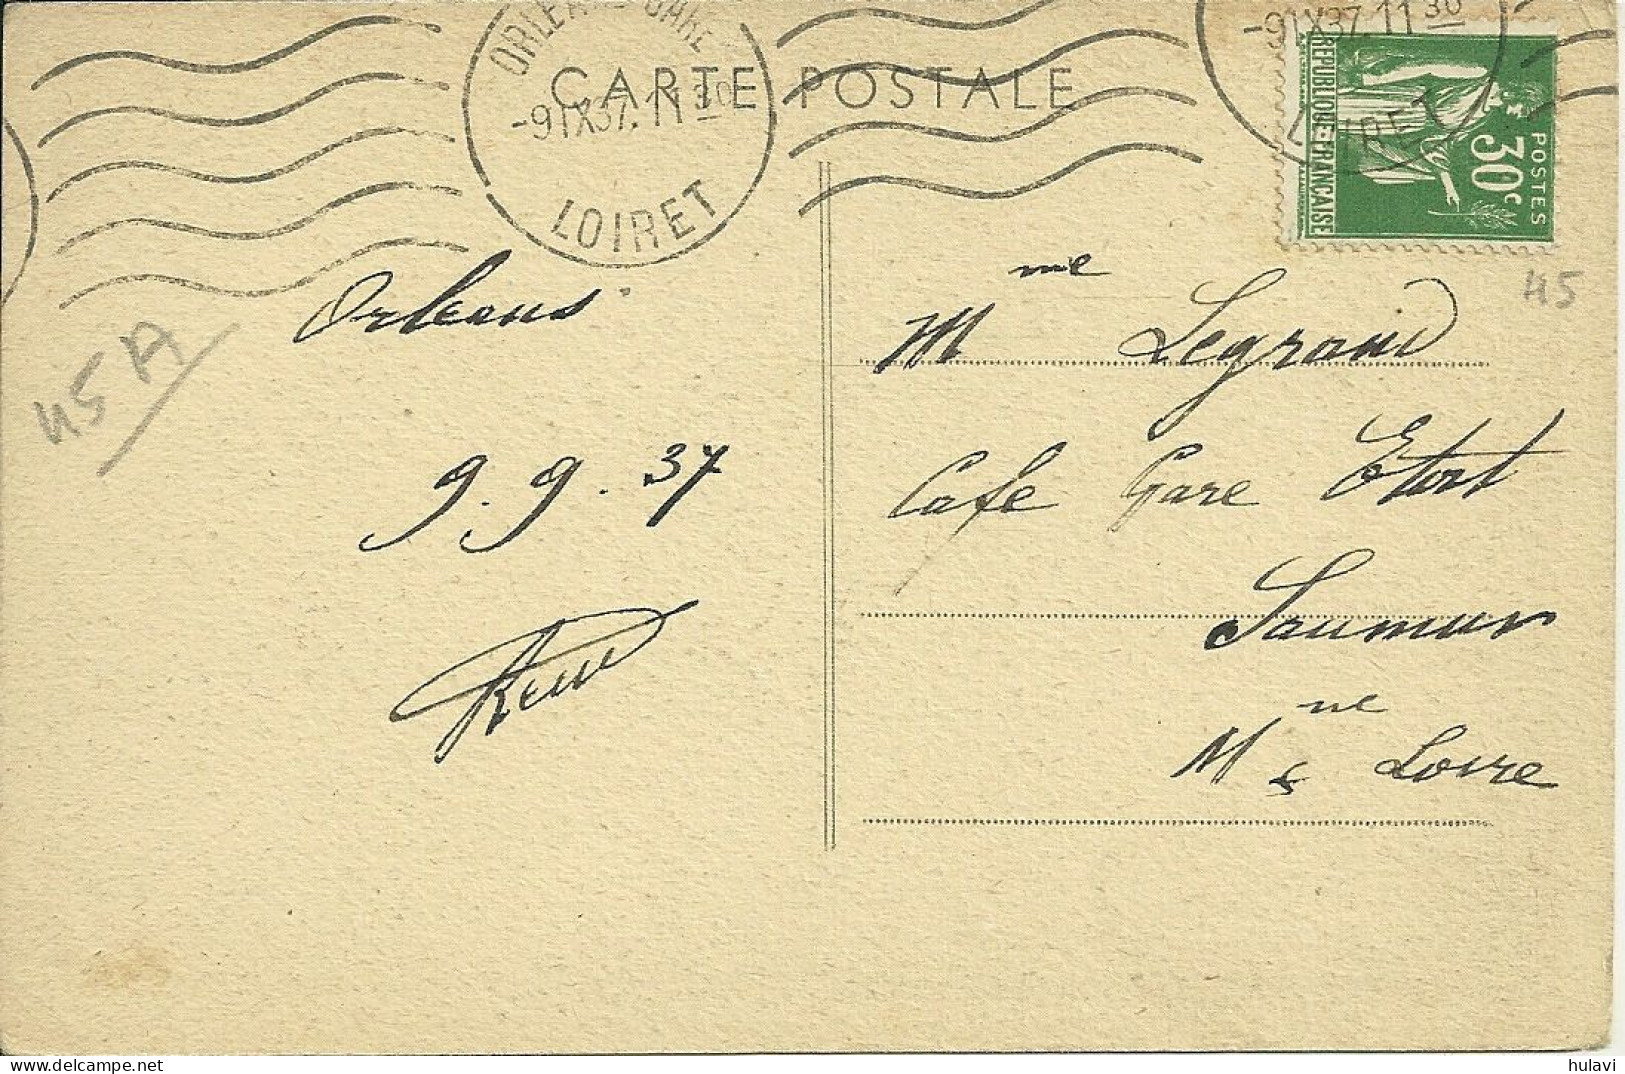 ORLEANS GARE
-9 IX37. 11 30
LOIRET
CARTE POSTALE
-9 IX37. 11 30
LOIRET
REPUBLIQUE-FRANÇAISE
POSTES
30c
45
45 A
Orleans
9.9.37
Mme Legrand
Cafe Gare Etat
Saumur
M ne & Loire
hulavi